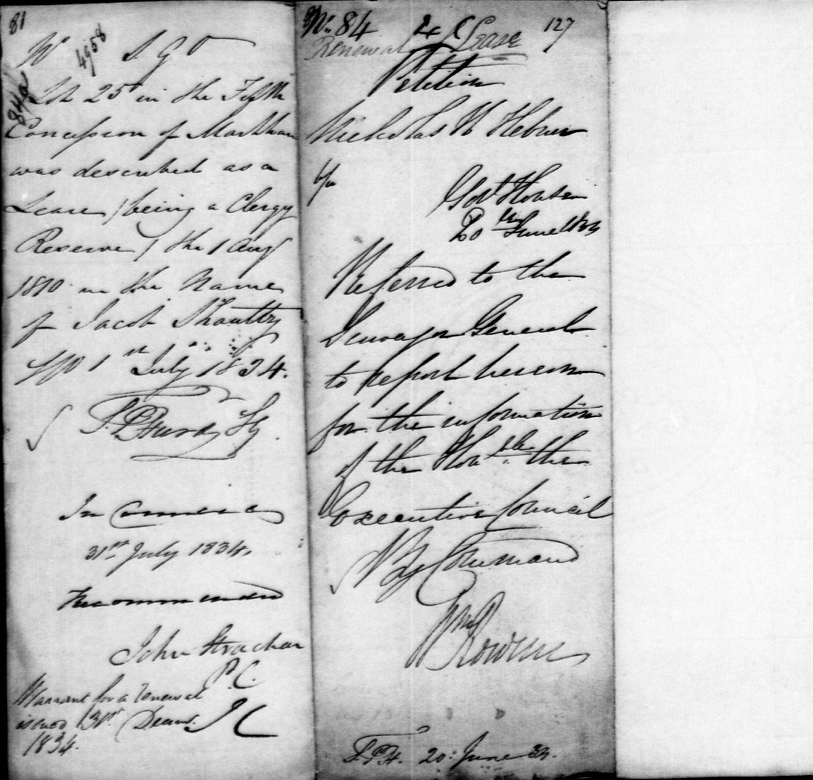 81
4958
S. G. O
Lot 25 in the Fifth
Concession of Markham
was described as a
Lease (being a Clergy
Reserve) the 1 Aug
1810 in the Name
of Jacob
1st July 1834.
In Council
31st July 1834.
Recommended
John Strachan
P. C.
Warrant for a renewal
issued 31st Decem.
1834.
No. 84 127
Renewal of Lease
Petition
Nicholas
Govt House
20th June 1834
Referred to the
Surveyor General
to report hereon
for the information
of the Honble the
Executive Council
By Command
Wm Rowan
20 June 34.